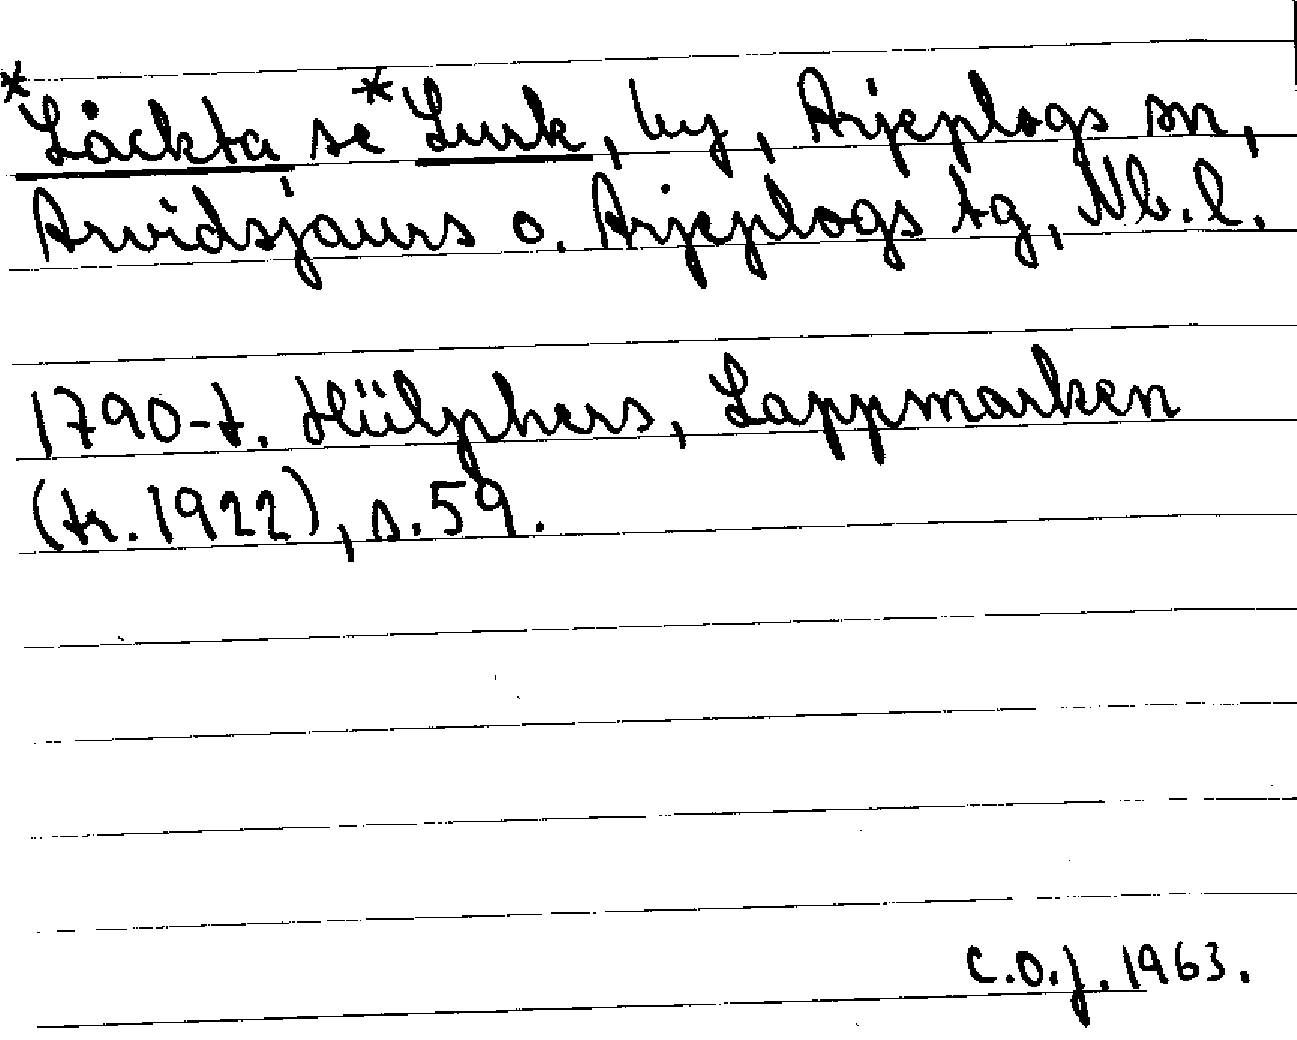 *Låckta se *Lusk, by, Arjeplogs sn,
Arvidsjaurs o. Arjeplogs tg, Nb. l.
1790-t. Hülphers, Lappmarken
(tr. 1922), s. 59.
C.O.J. 1963.